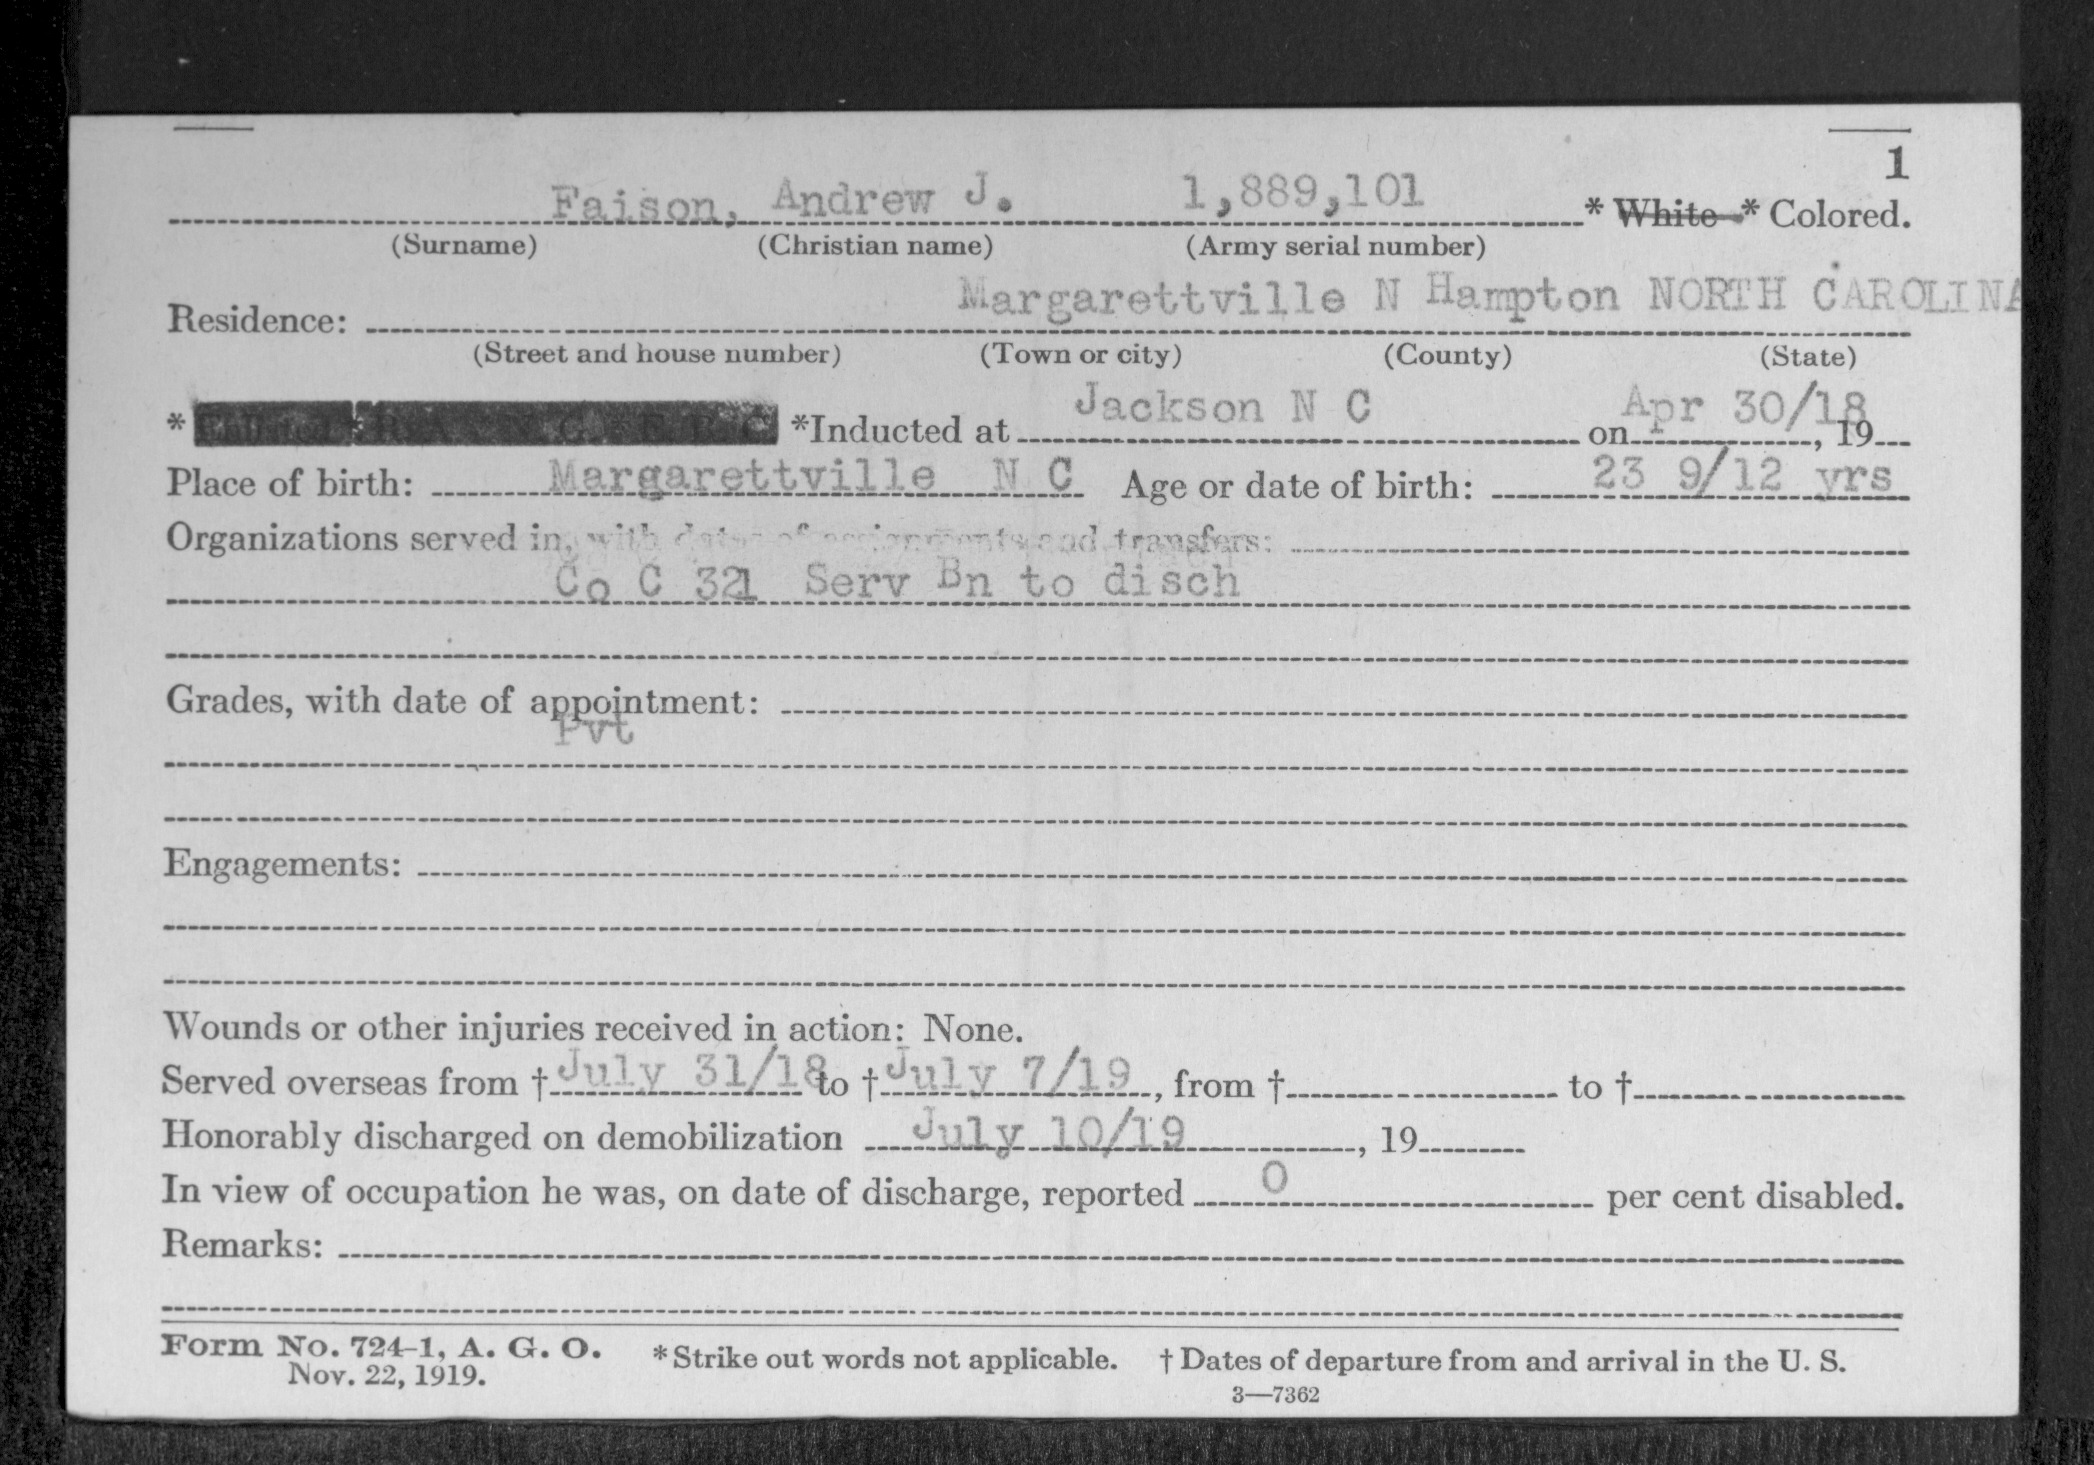 1
Faison, Andrew J. 1,889,101 * White * Colored.
(Surname) (Christian name) (Army serial number)
Margarettville N Hampton NORTH CAROLINA
Residence:
(Street and house number) (Town or city) (County) (State)
* Enlisted R A N. G. E R C *Inducted at Jackson N C on Apr 30/18, 19
Place of birth: Margarettville N C Age or date of birth: 23 9/12 yrs
Organizations served in, with dates of assignments and transfers:
Co C 321 Serv Bn to disch
Grades, with date of appointment:
Pvt
Engagements:
Wounds or other injuries received in action: None.
Served overseas from † July 31/18 to † July 7/19, from † to †
Honorably discharged on demobilization July 10/19, 19
In view of occupation he was, on date of discharge, reported 0 per cent disabled.
Remarks:
Form No. 724-1, A. G. O. * Strike out words not applicable. † Dates of departure from and arrival in the U. S.
Nov. 22, 1919.
3—7362